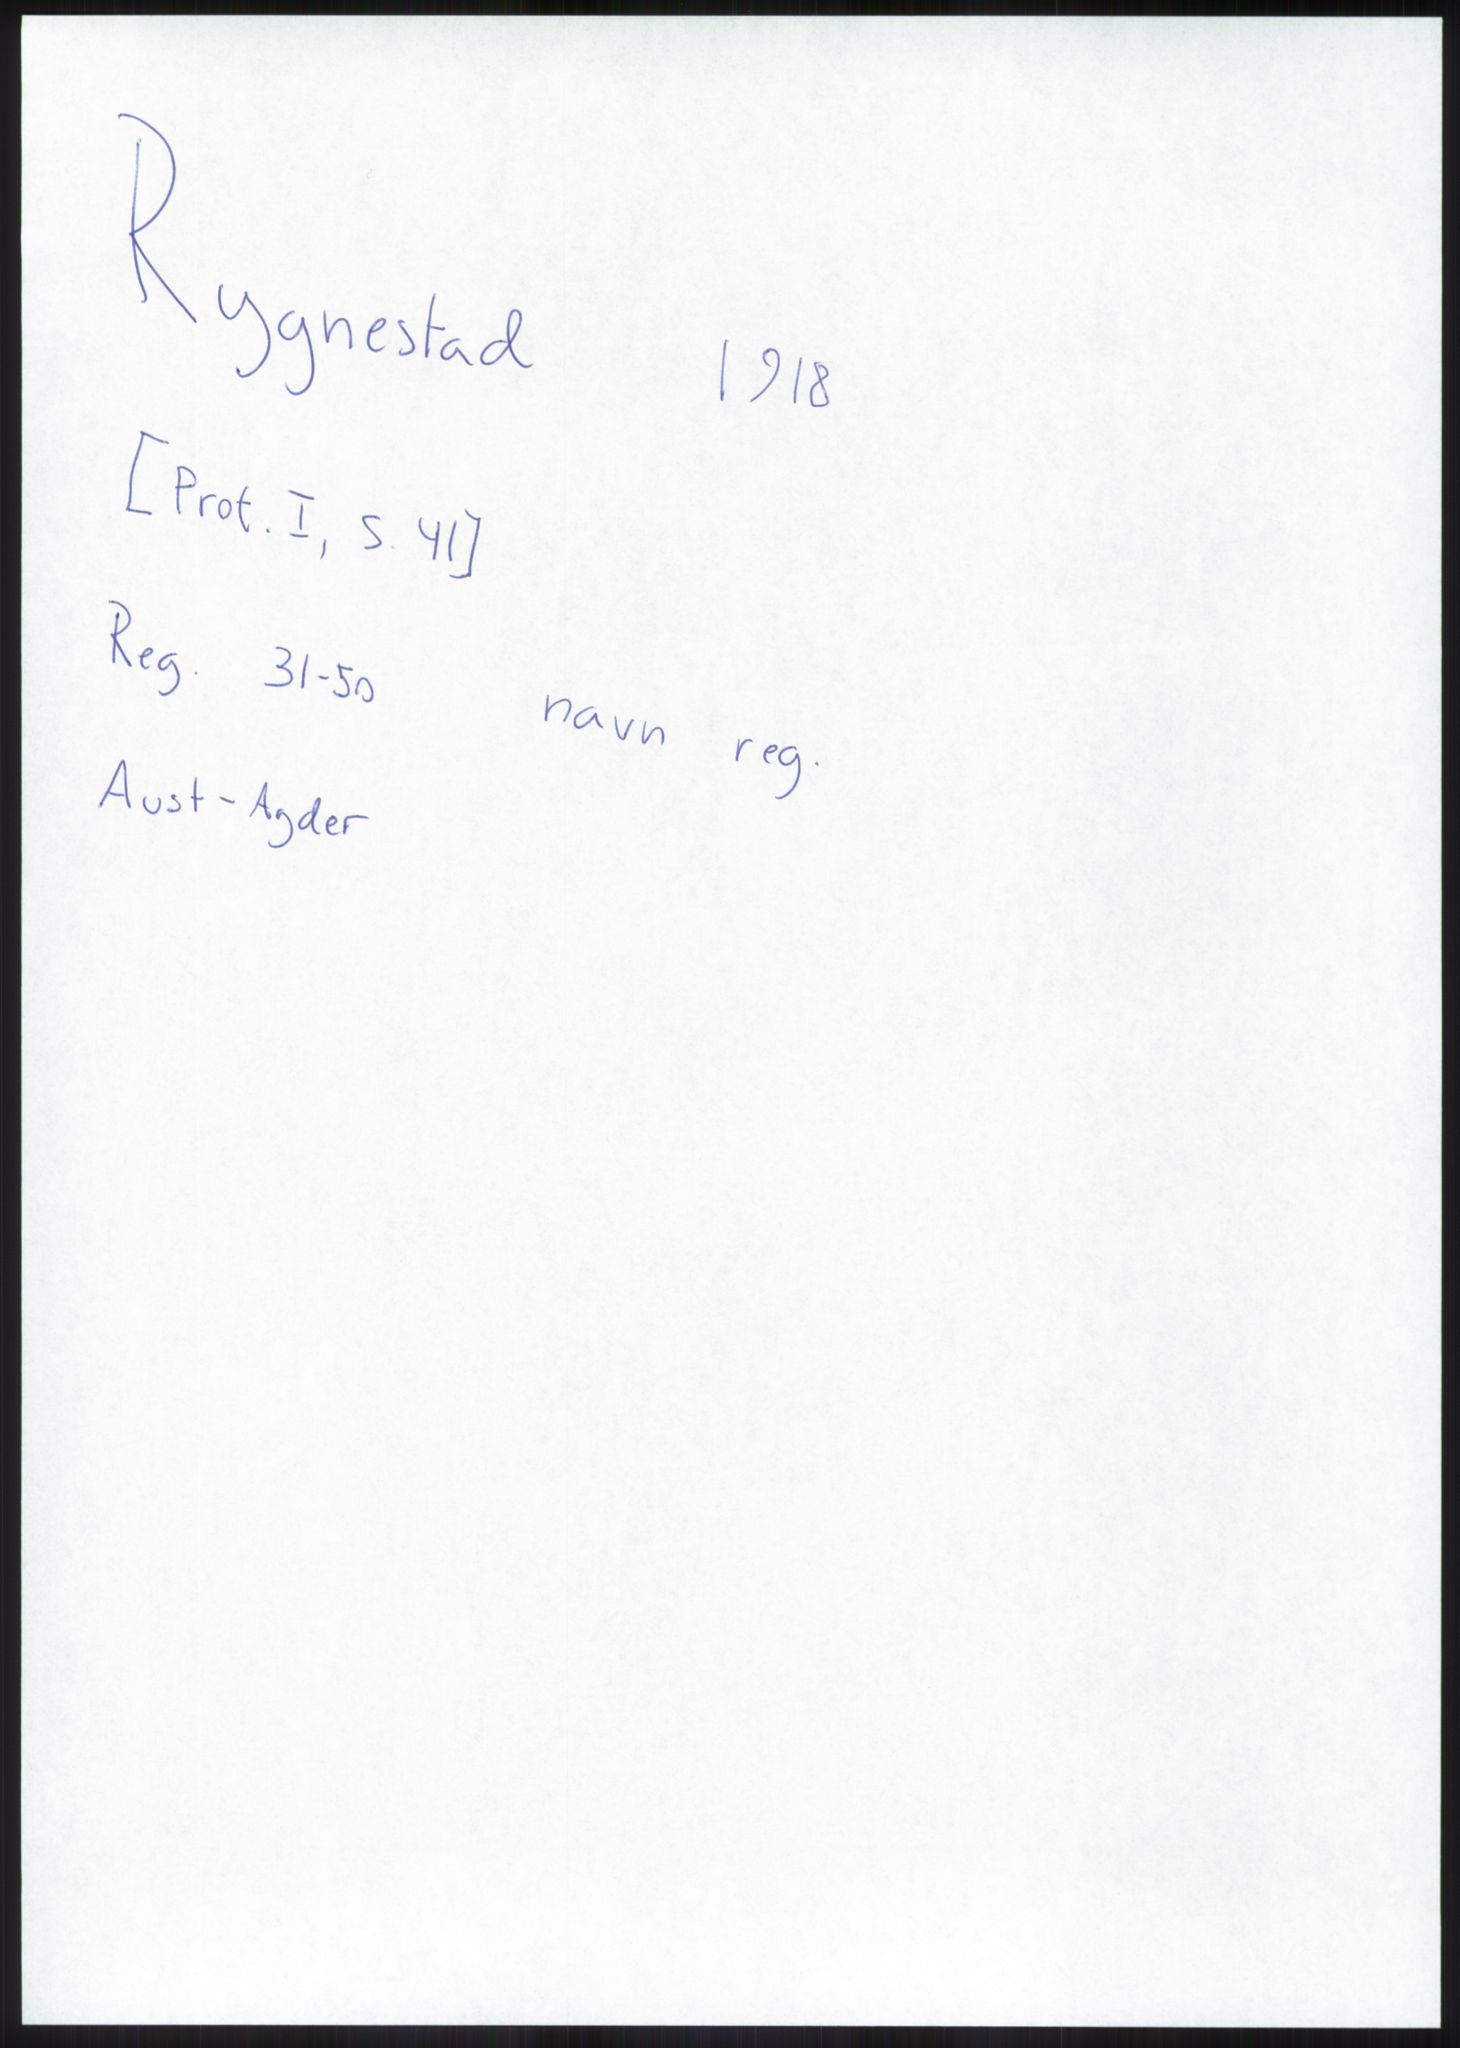 Rygnestad 1918
[Prot. I, s. 41]
Reg. 31-50 navn reg.
Aust-Agder